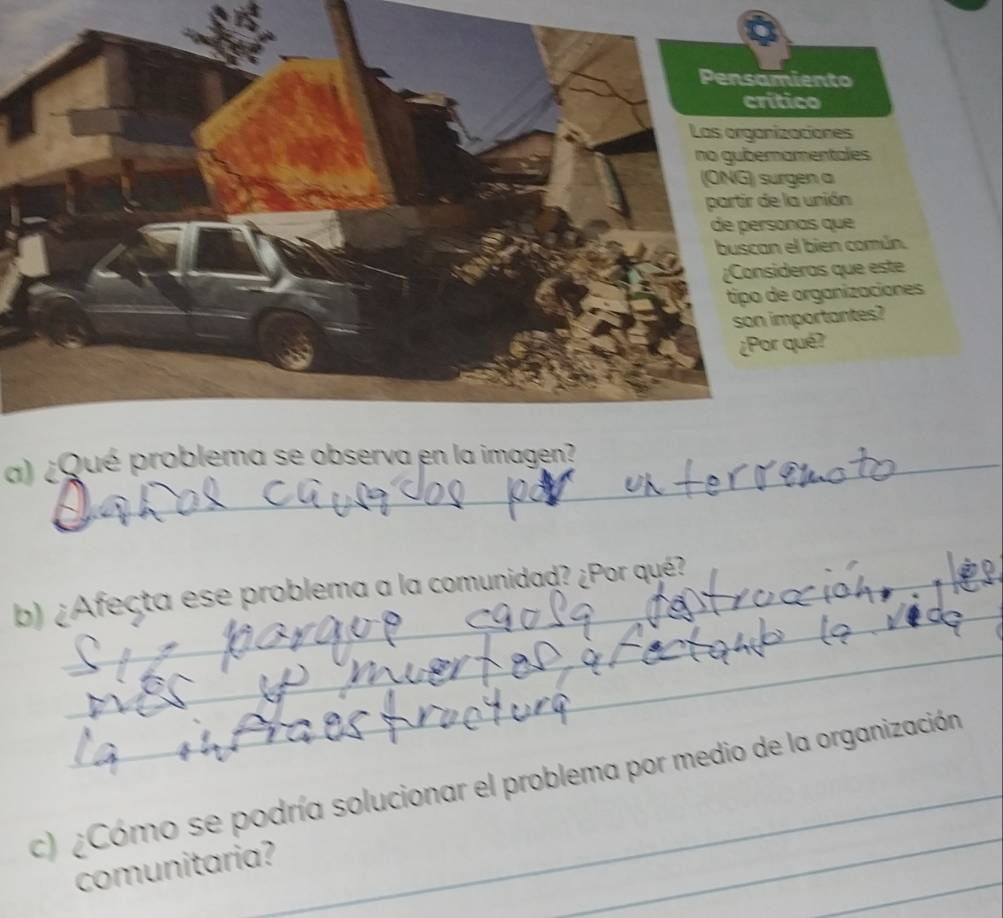 Pensamiento
crítico
Las organizaciones
no gubernamentales
(ONG) surgen a
partir de la unión
de personas que
buscan el bien común.
¿Consideras que este
tipo de organizaciones
son importantes?
¿Por qué?
a) ¿Qué problema se observa en la imagen?
Daños causados por un terremoto
b) ¿Afecta ese problema a la comunidad? ¿Por qué?
Si, porque causa destrucción, les
nes y muertes, afectando la vida
la infraestructura
c) ¿Cómo se podría solucionar el problema por medio de la organización
comunitaria?